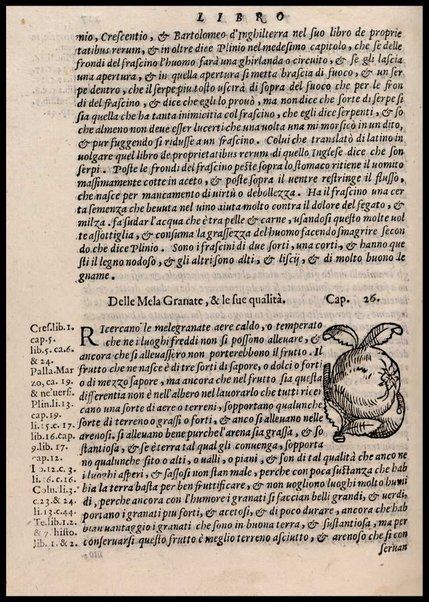 LIBRO
mio, Crescentio, & Bartolomeo d'Inghilterra nel suo libro de proprie
tatibus rerum, & in oltre dice Plinio nel medesimo capitolo, che se delle
frondi del frascino l'huomo farà una ghirlanda o circuito, & se gli lascia
una apertura, & in quella apertura si metta brascia di fuoco, & un ser
pe dentro, che il serpe piu tosto uscirà di sopra del fuoco che per le fron
di del frascino, & dice che egli lo prouò, ma non dice che sorte di serpe si
sia quella che ha tanta inimicitia col frascino, che egli dice serpenti, & so
che almeno non deue esser lucerti che una uolta una mi morsicò in un dito,
& pur fuggendo si ridusse a un frascino. Colui che translatò di latino in
uolgare quel libro de proprietatibus rerum di quello Inglese dice che son
serpi. Poste le frondi del frascino peste sopra lo stomaco ritiene il uomito
massimamente cotte in aceto, & peste sopra il uentre restringe il flusso,
che nasce per mancamento di uirtù o debollezza. Ha il frascino una cer
ta semenza che beuuta nel uino aiuta molto contra il dolore del fegato, &
milza. fa sudar l'acqua che è tra pelle & carne, usandosi questo molte uol
te assottiglia, & consuma la grassezza del huomo facendo smagrire secon
do che dice Plinio. Sono i frascini di due sorti, una corti, & hanno que
sti il legno nodoso, & gli altri sono alti, & liscij, & di molto buono le
gname.
Delle Mela Granate, & le sue qualità. Cap. 26.
Cres.lib.1.
cap.5.
lib.5. ca.6.
& 24.
Palla.Mar
zo, ca. 19.
& ne'uersi.
Plin.li.13.
cap.19.
li.15.c.17.
lib.16.cap.
9.lib.17.
cap.11.
l 2.12.c.3.
li.16.c.16.
Colu.li.3.
c.23.& 24
li.13.c.44.
Te.lib.1.2.
& 7. histo.
lib. 1. & 2.
Ricercano le melegranate aere caldo, o temperato
che ne i luoghi freddi non si possono alleuare, &
ancora che si alleuassero non porterebbono il frutto. Il
frutto che ne nasce è di tre sorti di sapore, o dolci o forti
o di mezzo sapore, ma ancora che nel frutto sia questa
differentia non è nell'albero nel lauorarlo che tutti ricer
cano una sorte di aere o terreni, sopportano qualunche
sorte di terreno o grassi o forti, & anco si alleuano nelle
arenosi, si alleuano bene purche l'arena sia grassa, & so
stantiosa, & se è terra tal qual gli conuenga, sopporta
no qualunche sito o alti, o ualli, o piani, & son di tal qualità che anco ne
i luoghi asperi, & sassosi non stan male, perche con poca sustanza che hab
bia la terra basta per ben fruttificare, & non uogliono luoghi molto humi
di, perche ancora con l'humore i granati si faccian belli grandi, & uerdi,
portano i granati piu forti, & acetosi, & di poco durare, ancora che hab
bian uantaggio i granati che sono in buona terra, & sustantiosa, ma per
conseruarsi questo frutto è meglio terreno asciutto, & arenoso che si con
seruan